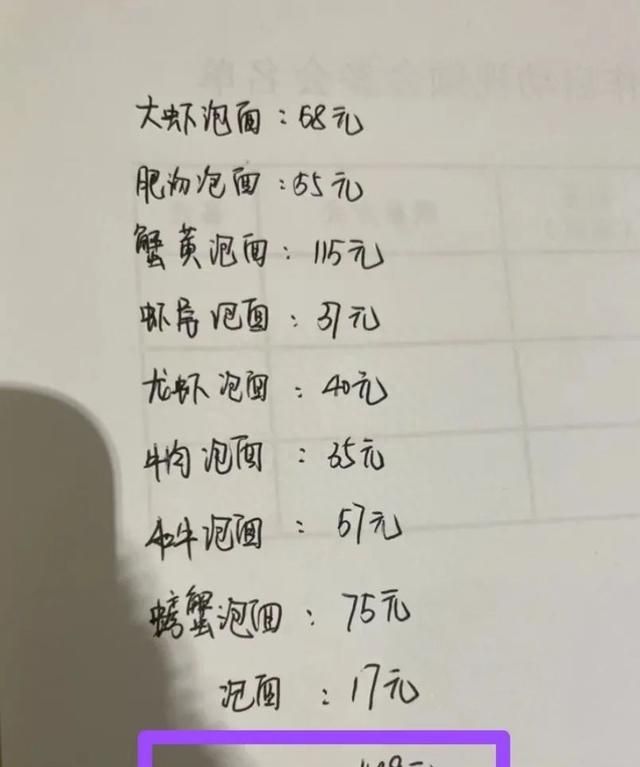 大虾泡面：68元
肥泡面：55元
蟹黄泡面：115元
虾尾泡面：37元
龙虾泡面：40元
牛肉泡面：35元
和牛泡面：57元
螃蟹泡面：75元
泡面：17元